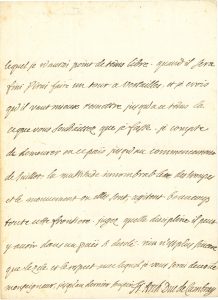 lequel je n'aurai point de tems libre. quand il sera
fini j'irai faire un tour a versailles. et je crois
qu'il vaut mieux remettre jusqu'a ce tems la
ce que vous souhaittez que je fasse. je compte
de demeurer en ce pais jusqu'au commencement
de juillet. la multitude innombrable des troupes
et le mouvement ou elles sont agitent beaucoup
toute cette frontiere. jugez quelle discipline il peut
y avoir dans un pais a bords. rien n'est plus sincere
que le zele et le respect avec lequel je serai
monseigneur jusqu'au dernier soupir
Fr. Arch. Duc de Cambray